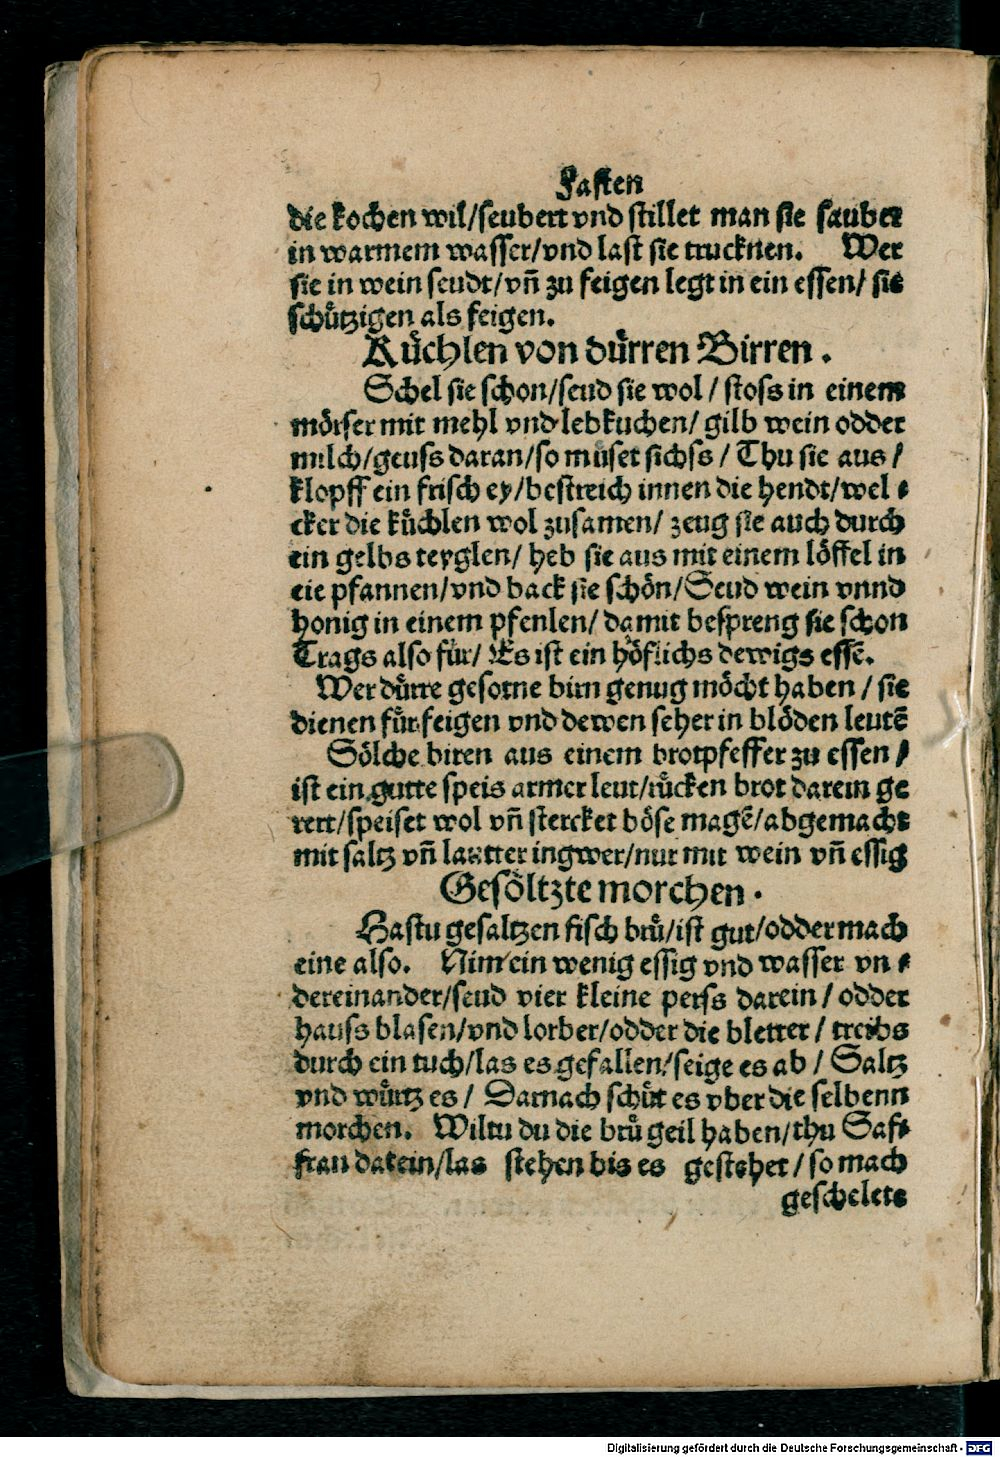 Fasten
die kochen wil/seubert vnd stillet man sie sauber
in warmem wasser/vnd last sie trucknen. Wer
sie in wein seudt/vñ zu feigen legt in ein essen/ sie
schützigen als feigen.
Küchlen von dürren Birren.
Schel sie schon/seud sie wol/ stoss in einem
mörser mit mehl vnd lebkuchen/ gilb wein odder
milch/geuss daran/so müset sichss/ Thu sie aus/
klopff ein frisch ey/bestreich innen die hendt/wel⸗
cker die küchlen wol zusamen/ zeug sie auch durch
ein gelbs teyglen/ heb sie aus mit einem löffel in
eie pfannen/vnd back sie schön/Seud wein vnnd
honig in einem pfenlen/ damit bespreng sie schon
Trags also für/ Es ist ein höflichs dewigs essẽ.
Wer dürre gesotne birn genug möcht haben/ sie
dienen für feigen vnd dewen seher in blöden leutẽ
Sölche biren aus einem brotpfeffer zu essen/
ist ein gutte speis armer leut/rücken brot darein ge
rert/speiset wol vñ stercket böse magẽ/abgemacht
mit saltz vñ lautter ingwer/nur mit wein vñ essig
Gesöltzte morchen.
Hastu gesaltzen fisch brü/ist gut/odder mach
eine also. Nim ein wenig essig vnd wasser vn⸗
dereinander/seud vier kleine perss darein/ odder
hauss blasen/vnd lorber/odder die bletter/ treibs
durch ein tuch/las es gefallen/seige es ab/ Saltz
vnd würtz es/ Darnach schüt es vber die selbenn
morchen. Wiltu du die brü geil haben/thu Saf⸗
fran darein/las stehen bis es gestehet/ so mach
geschelete
Digitalisierung gefördert durch die Deutsche Forschungsgemeinschaft - DFG